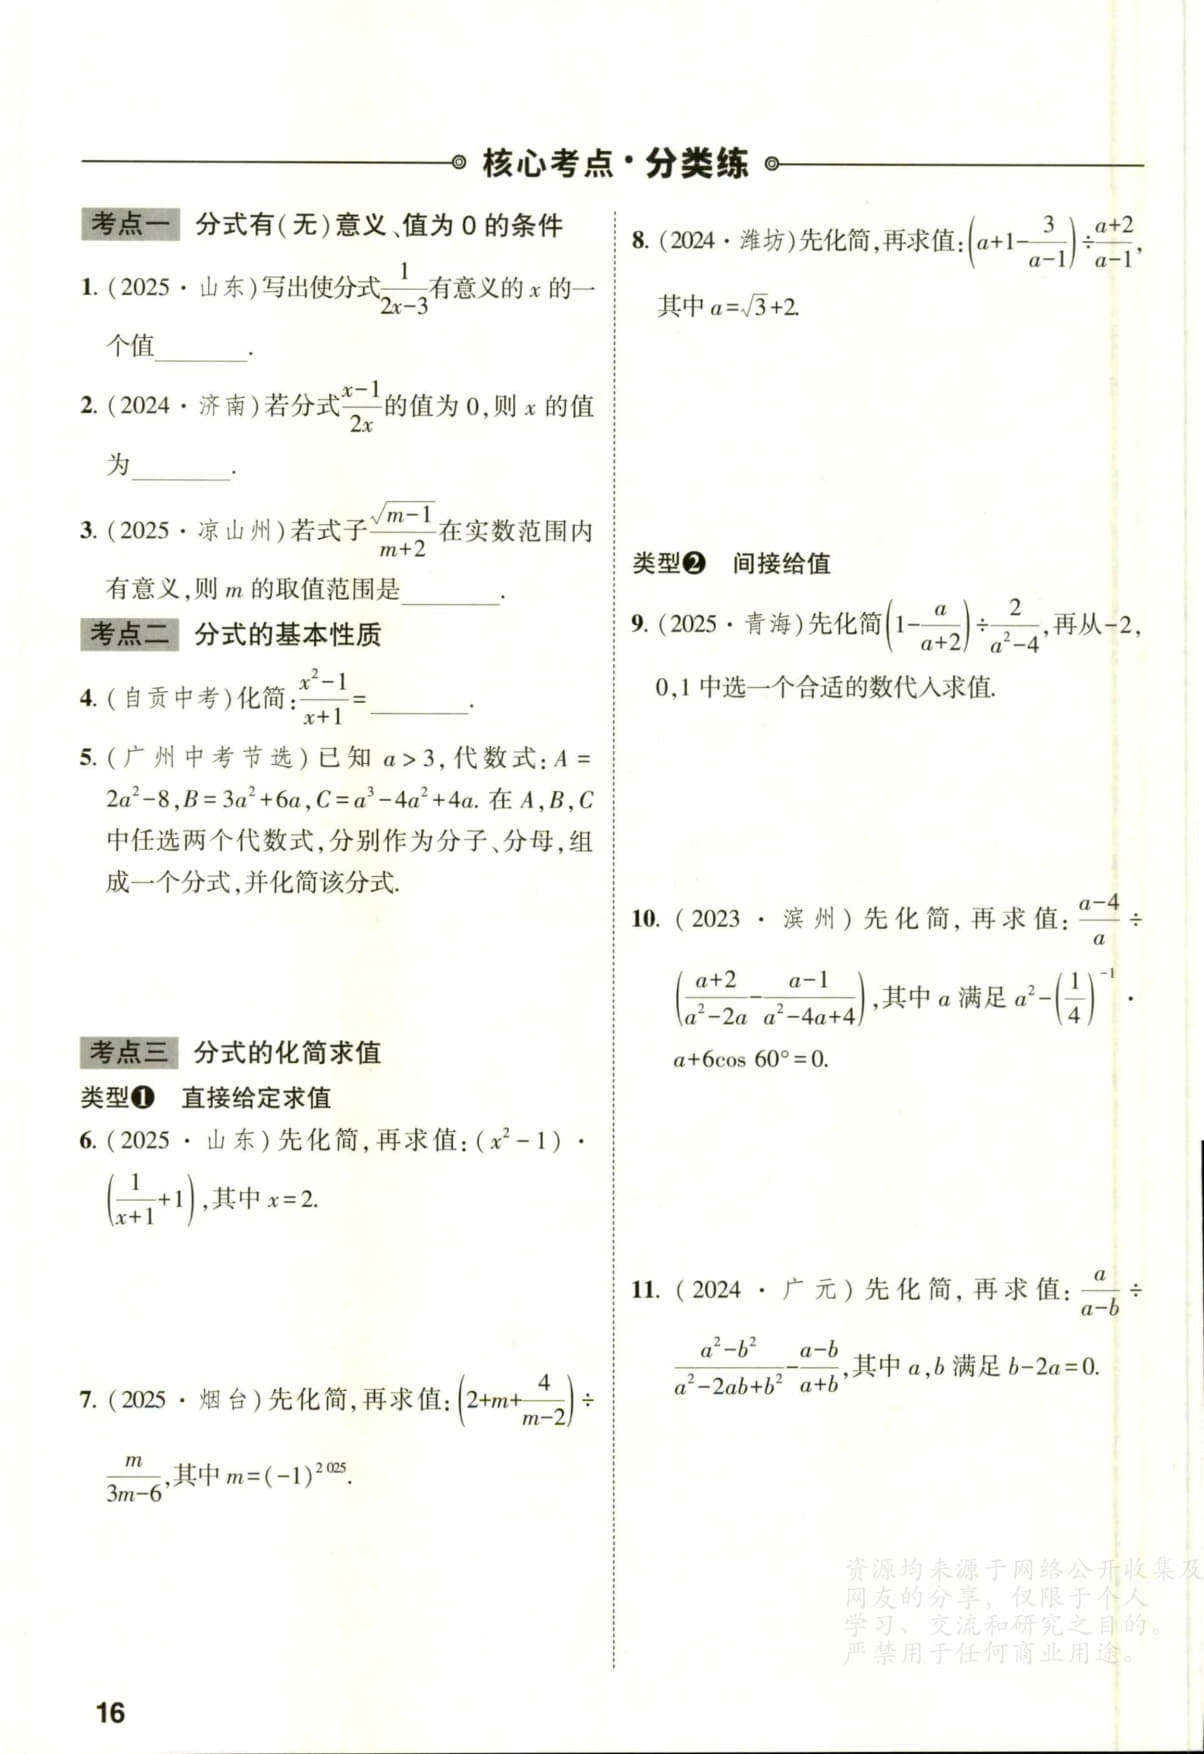 核心考点·分类练
考点一 分式有(无)意义、值为 0 的条件
1. (2025·山东)写出使分式\frac{1}{2x-3}有意义的 x 的一
个值________.
2. (2024·济南)若分式\frac{x-1}{2x}的值为 0,则 x 的值
为________.
3. (2025·凉山州)若式子\frac{\sqrt{m-1}}{m+2}在实数范围内
有意义,则 m 的取值范围是________.
考点二 分式的基本性质
4. (自贡中考)化简:\frac{x^2-1}{x+1}=________.
5. (广州中考节选)已知 a>3,代数式:A=
2a^2-8,B=3a^2+6a,C=a^3-4a^2+4a. 在 A,B,C
中任选两个代数式,分别作为分子、分母,组
成一个分式,并化简该分式.
考点三 分式的化简求值
类型❶ 直接给定求值
6. (2025·山东)先化简,再求值:(x^2-1)·
(\frac{1}{x+1}+1),其中 x=2.
7. (2025·烟台)先化简,再求值:(2+m+\frac{4}{m-2})÷
\frac{m}{3m-6},其中 m=(-1)^{2 025}.
8. (2024·潍坊)先化简,再求值:(a+1-\frac{3}{a-1})÷\frac{a+2}{a-1},
其中 a=\sqrt{3}+2.
类型❷ 间接给值
9. (2025·青海)先化简(1-\frac{a}{a+2})÷\frac{2}{a^2-4},再从-2,
0,1 中选一个合适的数代入求值.
10. (2023·滨州)先化简,再求值:\frac{a-4}{a}÷
(\frac{a+2}{a^2-2a}-\frac{a-1}{a^2-4a+4}),其中 a 满足 a^2-(\frac{1}{4})^{-1}·
a+6cos 60°=0.
11. (2024·广元)先化简,再求值:\frac{a}{a-b}÷
\frac{a^2-b^2}{a^2-2ab+b^2}-\frac{a-b}{a+b},其中 a,b 满足 b-2a=0.
资源均来源于网络公开收集及
网友的分享，仅限于个人
学习、交流和研究之目的。
严禁用于任何商业用途。
16